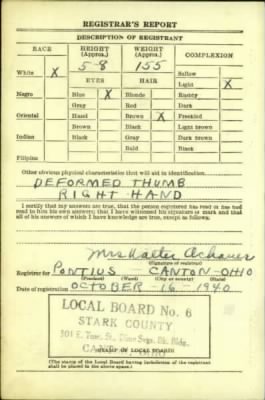 REGISTRAR'S REPORT
DESCRIPTION OF REGISTRANT
RACE HEIGHT (Approx.) WEIGHT (Approx.) COMPLEXION
5-8 155
White X Sallow
EYES HAIR Light X
Negro Blue X Blonde Ruddy
Gray Red Dark
Oriental Hazel Brown X Freckled
Brown Black Light brown
Indian Black Gray Dark brown
Bald Black
Filipino
Other obvious physical characteristics that will aid in identification
DEFORMED THUMB
RIGHT HAND
I certify that my answers are true; that the person registered has read or has had
read to him his own answers; that I have witnessed his signature or mark and that
all of his answers of which I have knowledge are true, except as follows:
Mrs Walter
(Signature of registrar)
Registrar for PONTIUS CANTON-OHIO
(Precinct) (Ward) (City or county) (State)
Date of registration OCTOBER-16-1940
LOCAL BOARD No. 6
STARK COUNTY
Bldg.
(STAMP OF LOCAL BOARD)
(The stamp of the Local Board having jurisdiction of the registrant
shall be placed in the above space.)